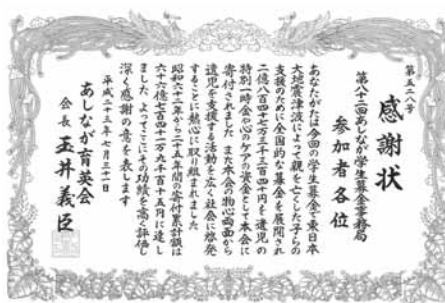 第五二八号
感謝状
第八十二回あしなが学生募金事務局
参加者各位
あなたがたは今回の学生募金で東日本
大地震津波によって親を亡くした子らの
支援のために全国的な募金を展開され
二億八百四十七万三千三百四十円を遺児の
特別一時金や心のケアの資金として本会に
寄付されました また本会の物心両面から
遺児を支援する活動を広く社会に啓発
することに熱心に取り組まれました
昭和六十二年から二十五年間の寄付累計額は
六十六億七百二十万九千百十五円に達し
ました よってここにその功績を高く評価し
深く感謝の意を表します
平成二十三年七月三十一日
あしなが育英会
会長 玉井義臣